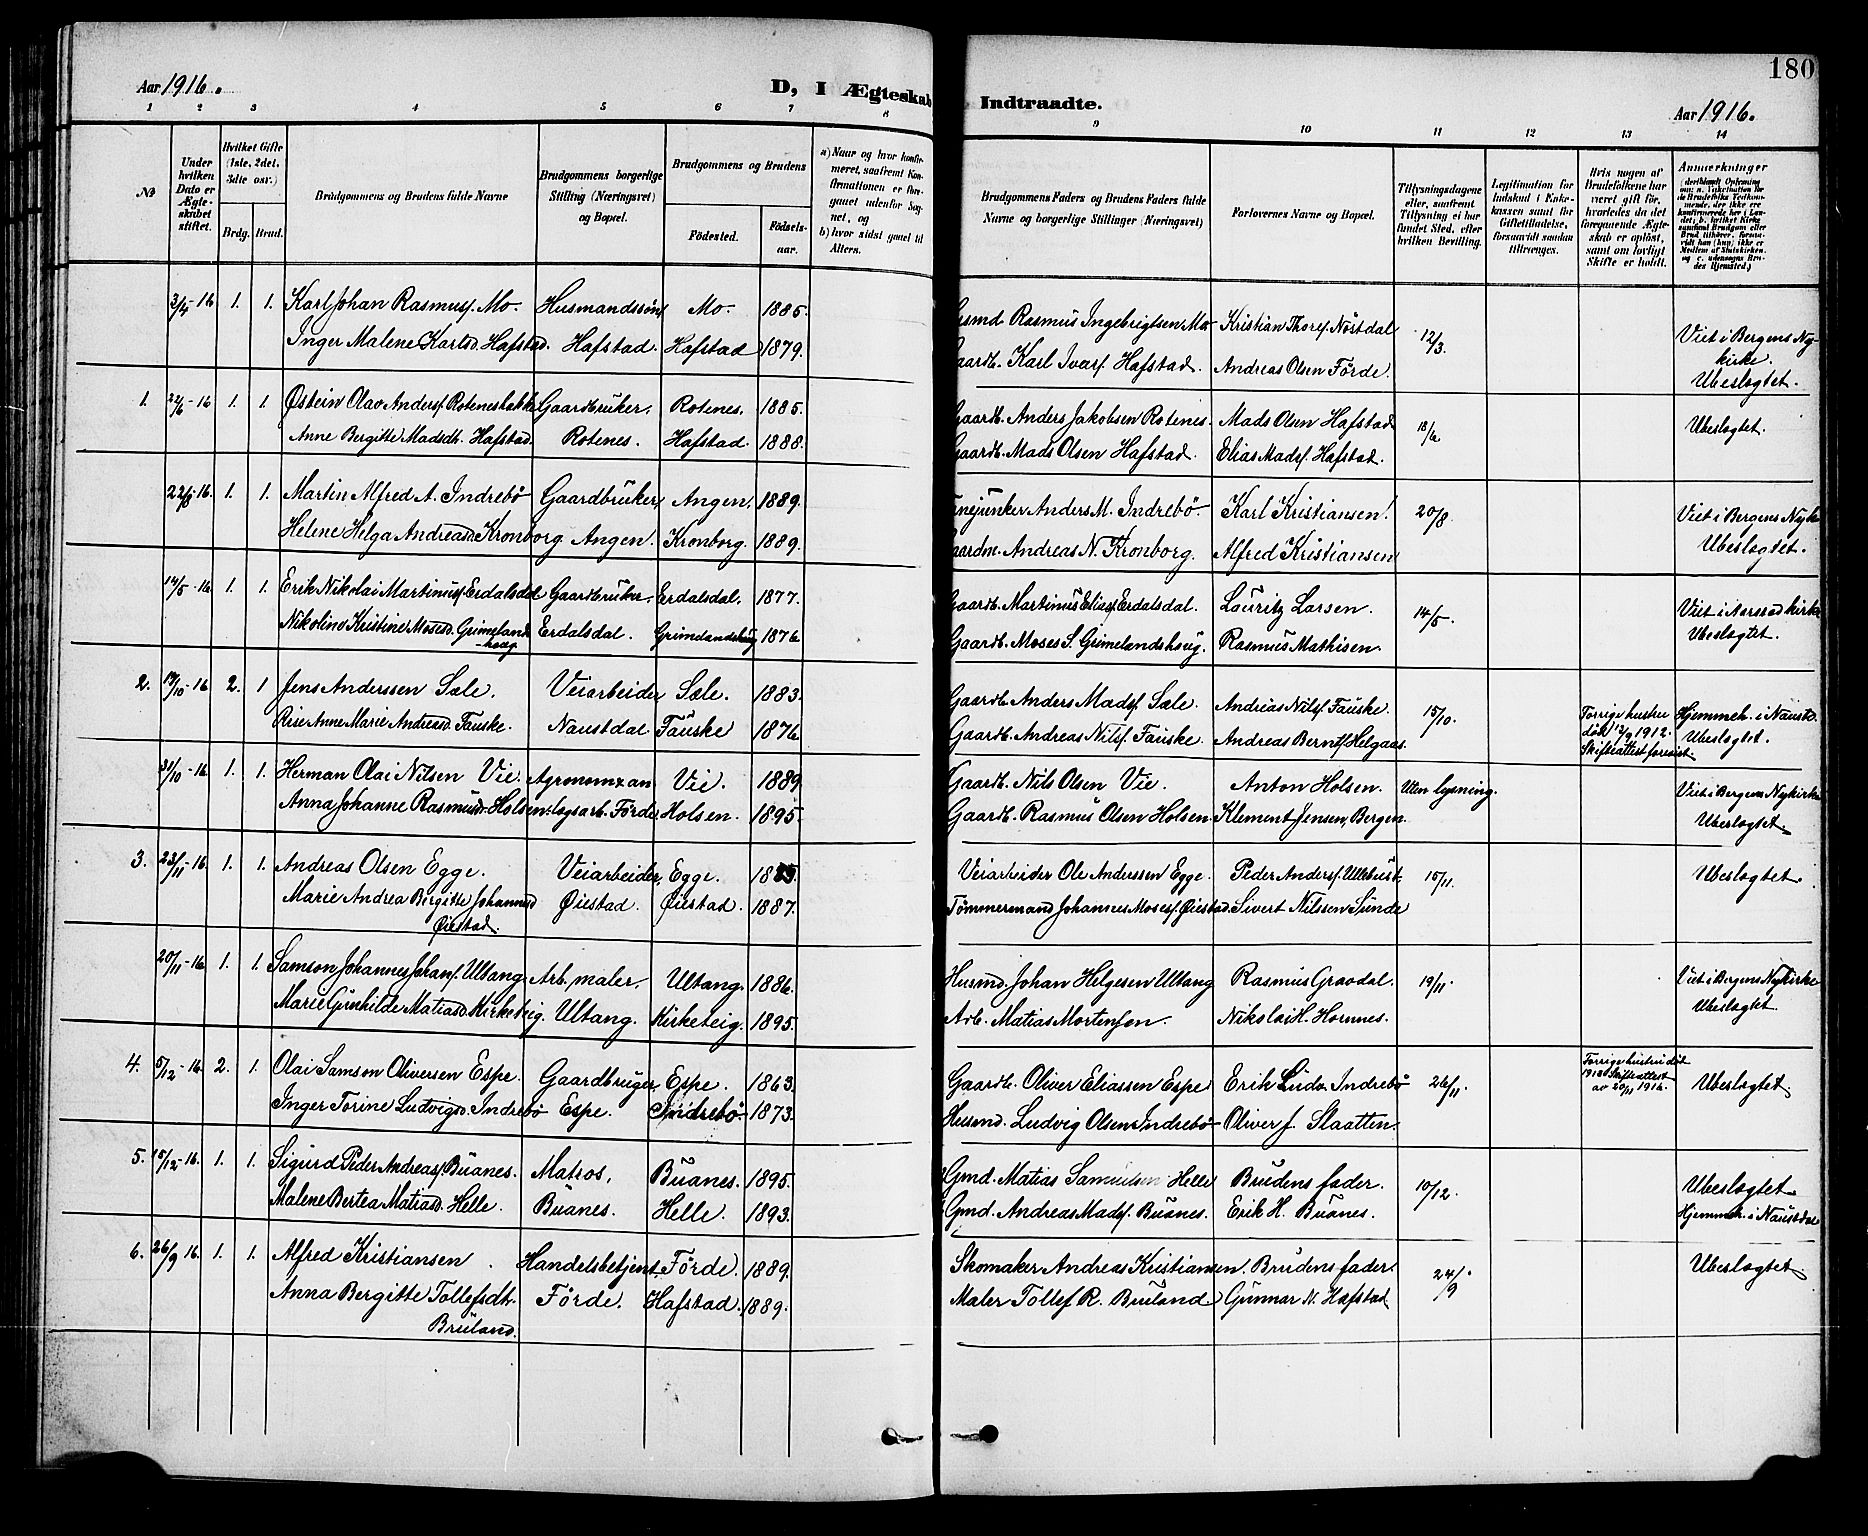 Aar 1916.
D, I Ægteskab
1 2 3 4 5 6 7 8
No
Under hvilken Dato er Ægteskabet stiftet.
Hvilket Gifte (1ste, 2det, 3die osv.)
Brdg. Brud.
Brudgommens og Brudens fulde Navne
Brudgommens borgerlige Stilling (Næringsvei) og Bopæl.
Brudgommens og Brudens
Födested. Födselsaar.
a) Naar og hvor konfirmeret, saafremt Konfirmationen er foregaaet udenfor Sognet, og
b) hvor sidst gaaet til Alters.
3/4-16 1. 1. Karl Johan Rasmusf. Mo. Husmandssön Mo. 1885.
Inger Malene Karlsd. Hafstad. Hafstad. Hafstad 1879.
1. 22/6-16 1. 1. Østein Olav Andersf. Rotenes Gaardbruker. Rotenes. 1885.
Anne Bergitte Madsdt. Hafstad. Rotenes. Hafstad. 1888.
22/8-16. 1. 1. Martin Alfred A. Indrebö Gaardbruker, Angen. 1889.
Helene Helga Andreasd. Kronborg Angen. Kronborg. 1889.
14/5-16 1. 1. Erik Nikolai Martinusf. Erdalsdal Gaardbruker. Erdalsdal. 1877.
Nikoline Kristine Mosesd. Grimelands Erdalsdal. Grimelandshaug 1876
-haug.
2. 19/10-16 2. 1 Jens Anderssen Sæle. Veiarbeider Sæle. 1883.
Anne Marie Andreasd. Fauske. Naustdal Fauske 1876
31/10-16. 1. 1. Herman Olai Nilsen Vie. Agronom & an Vie. 1889
Anna Johanne Rasmusd. Holsen. lægsarb. Förde Holsen. 1895.
3. 23/11-16. 1. 1. Andreas Olsen Egge. Veiarbeider, Egge.
Marie Andrea Birgitte Johannesd Øiestad. Øiestad. 1887.
Øiestad.
20/11-16 1. 1. Samson Johannes Johansf. Ultang Arb. maler. Ultang. 1886.
Marie Gunhilde Matiasd. Kirketeig. Ultang. Kirketeig. 1895.
4. 5/12-16 2. 1. Olai Samson Oliversen Espe. Gaardbruger, Espe. 1863.
Inger Torine Ludvigsd. Indrebö Espe. Indrebö. 1873.
5. 15/12-16. 1. 1. Sigurd Peder Andreasf. Buanes. Matros. Buanes. 1895.
Malene Bertea Matiasd. Helle. Buanes. Helle. 1893.
6. 26/9 16. 1. 1. Alfred Kristiansen Handelsbetjent Förde. 1889.
Anna Bergitte Tollefsdt. Förde. Hafstad. 1889.
Bruland.
180
Indtraadte.
Aar 1916.
9 10 11 12 13 14
Brudgommens Faders og Brudens Faders fulde Navne og borgerlige Stillinger (Næringsvei)
Forlovernes Navne og Bopæl.
Tillysningsdagene eller, saafremt Tillysning ei har fundet Sted, efter hvilken Bevilling.
Legitimation for Indskud i Enkekassen samt for Giftetilladelse, forsaavidt saadan tiltrænges.
Hvis nogen af Brudefolkene har været gift før, hvorledes da det foregaaende Ægteskab er opløst, samt om lovligt Skifte er holdt.
Anmærkninger
Rasmus Ingebrigtsen Mo Kristian Thoresf. Nöstdal
12/3. Viet i Bergens Ny-
Gaardb. Karl Ivarsf. Hafstad. Andreas Olsen Förde. kirke.
Ubeslægtet.
Gaardb. Anders Jakobsen Rotenes. Mads Olsen Hafstad
18/6 Ubeslægtet.
Gaardb. Mads Olsen Hafstad. Elias Madsf. Hafstad.
Anders M. Indrebö Karl Kristiansen. 20/8 Viet i Bergens Nyk
Andreas N. Kronborg. Alfred Kristiansen Ubeslægtet.
Gaardb. Martinus Eliasf. Erdalsdal. Lauritz Larsen. 14/5. Viet i kirke
Gaardb. Moses S. Grimelandshaug. Rasmus Mathisen. Ubeslægtet.
Gaardb. Anders Madsf. Sæle. Andreas Nilsf. Fauske. 15/10. Forrige hustru Hjemmeh. i Naustd.
Gaardb. Andreas Nilsf. Fauske. Andreas Berntsf. Helgaas. död 12/9 1912. Ubeslægtet.
Skifteattest forevist
Gaardb. Nils Olsen Vie. Anton Holsen. Uten lysning. Viet i Bergens Nykirke
Gaardb. Rasmus Olsen Holsen. Klement Jensen, Bergen. Ubeslægtet.
Veiarbeider Ole Anderssen Egge. Peder Andersf. Ullebust. 15/11. Ubeslægtet.
Tömmermand Johannes Mosesf. Øiestad. Sivert Nilssen Sunde
Husmd. Johan Helgesen Ultang Rasmus Graodal. 19/11. Viet i Bergens Nykirke
Arb. Matias Mortensen. Nikolai H. Hornnes. Ubeslægtet.
Gaardb. Oliver Eliassen Espe Erik Ludv. Indrebö 26/11. Forrige hustru död
Skifteattest av 20/11 1916. Ubeslægtet.
Husmd. Ludvig Olsen Indrebö Oliver J. Slaatten.
Gmd. Matias Samuelsen Helle Brudens fader. 10/12. Ubeslægtet
Gmd. Andreas Madsf. Buanes. Erik H. Buanes. Hjemmeh. i Naustdal
Skomaker Andreas Kristiansen. Brudens fader. 24/9 Ubeslægtet.
Maler Tollef R. Bruland Gunnar N. Hafstad